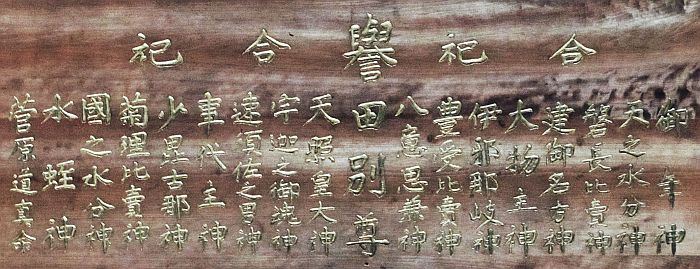 合祀
御年神
天之水分神
磐長比賣神
建御名方神
大物主神
伊邪那岐神
豊受比賣神
八意思兼神
譽田別尊
合祀
天照皇大神
宇迦之御魂神
速須佐之男神
事代主神
少毘古那神
菊理比賣神
國之水分神
水蛭神
菅原道真命